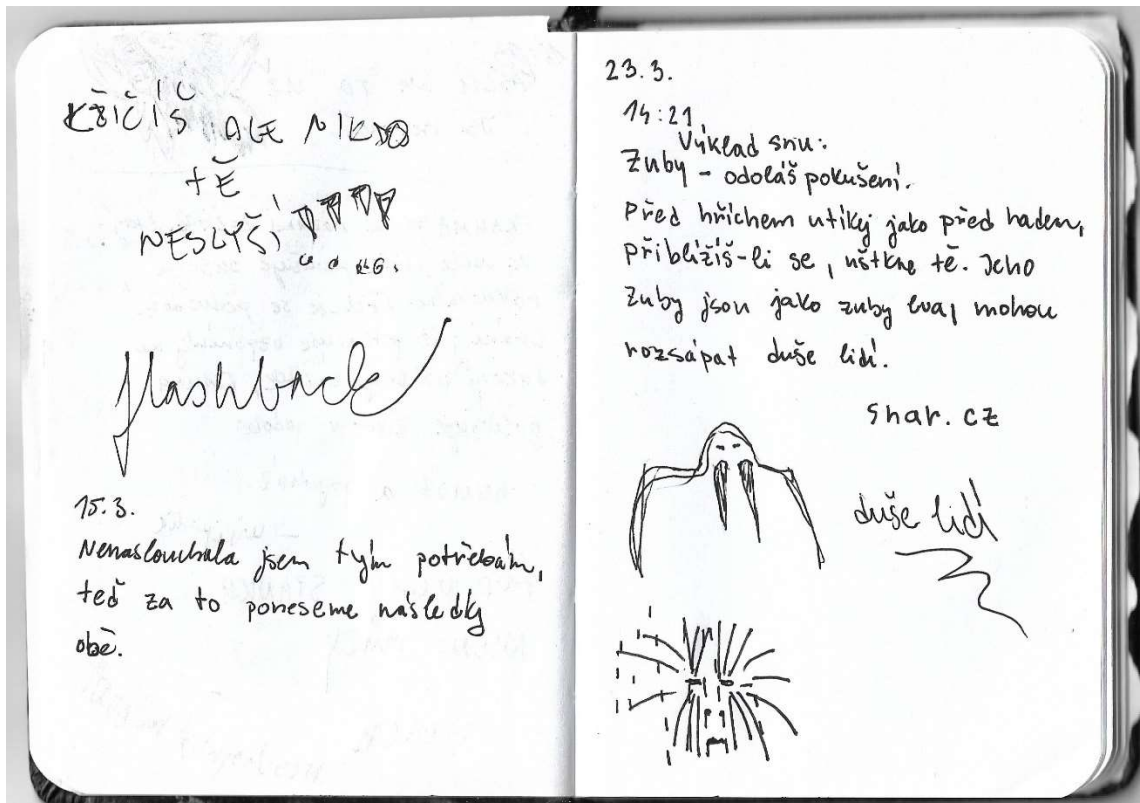 KŘIČÍŠ ALE NIKDO
TĚ
NESLYŠÍ
flashback
15.3.
Nenaslouchala jsem tvým potřebám,
teď za to poneseme následky
obě.
23.3.
14:21
Výklad snu:
Zuby - odoláš pokušení.
Před hříchem utíkej jako před hadem,
přiblížíš-li se, uštkne tě. Jeho
zuby jsou jako zuby lva, mohou
rozsápat duše lidí.
snar.cz
duše lidí